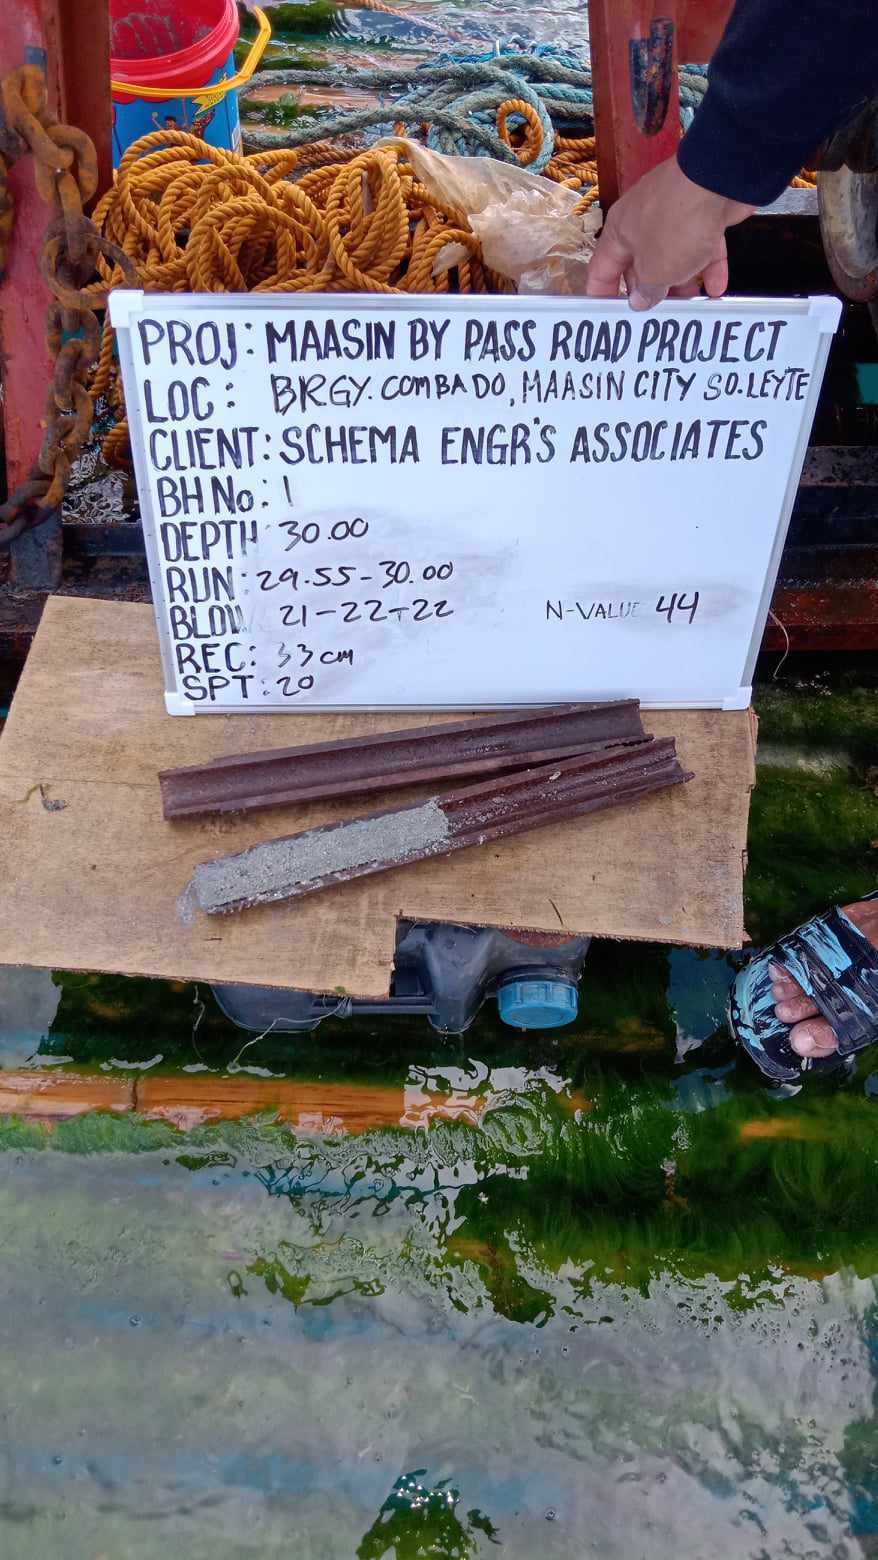 PROJ: MAASIN BY PASS ROAD PROJECT
LOC: BRGY. COMBADO, MAASIN CITY SO. LEYTE
CLIENT: SCHEMA ENGR'S ASSOCIATES
BH No: 1
DEPTH: 30.00
RUN: 29.55-30.00
BLOW 21-22-22 N-VALUE 44
REC: 33cm
SPT: 20